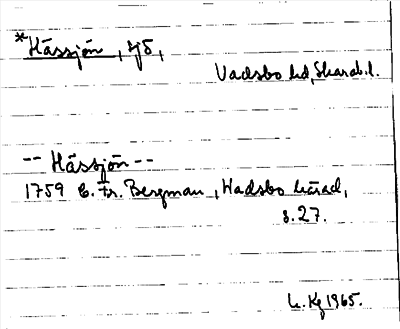 *Hässjön, sjö,
Vadsbo hd, Skarab.l.
-- Hässjön --
1759 C. Fr. Bergman, Wadsbo härad,
s. 27.
L. Kg 1965.